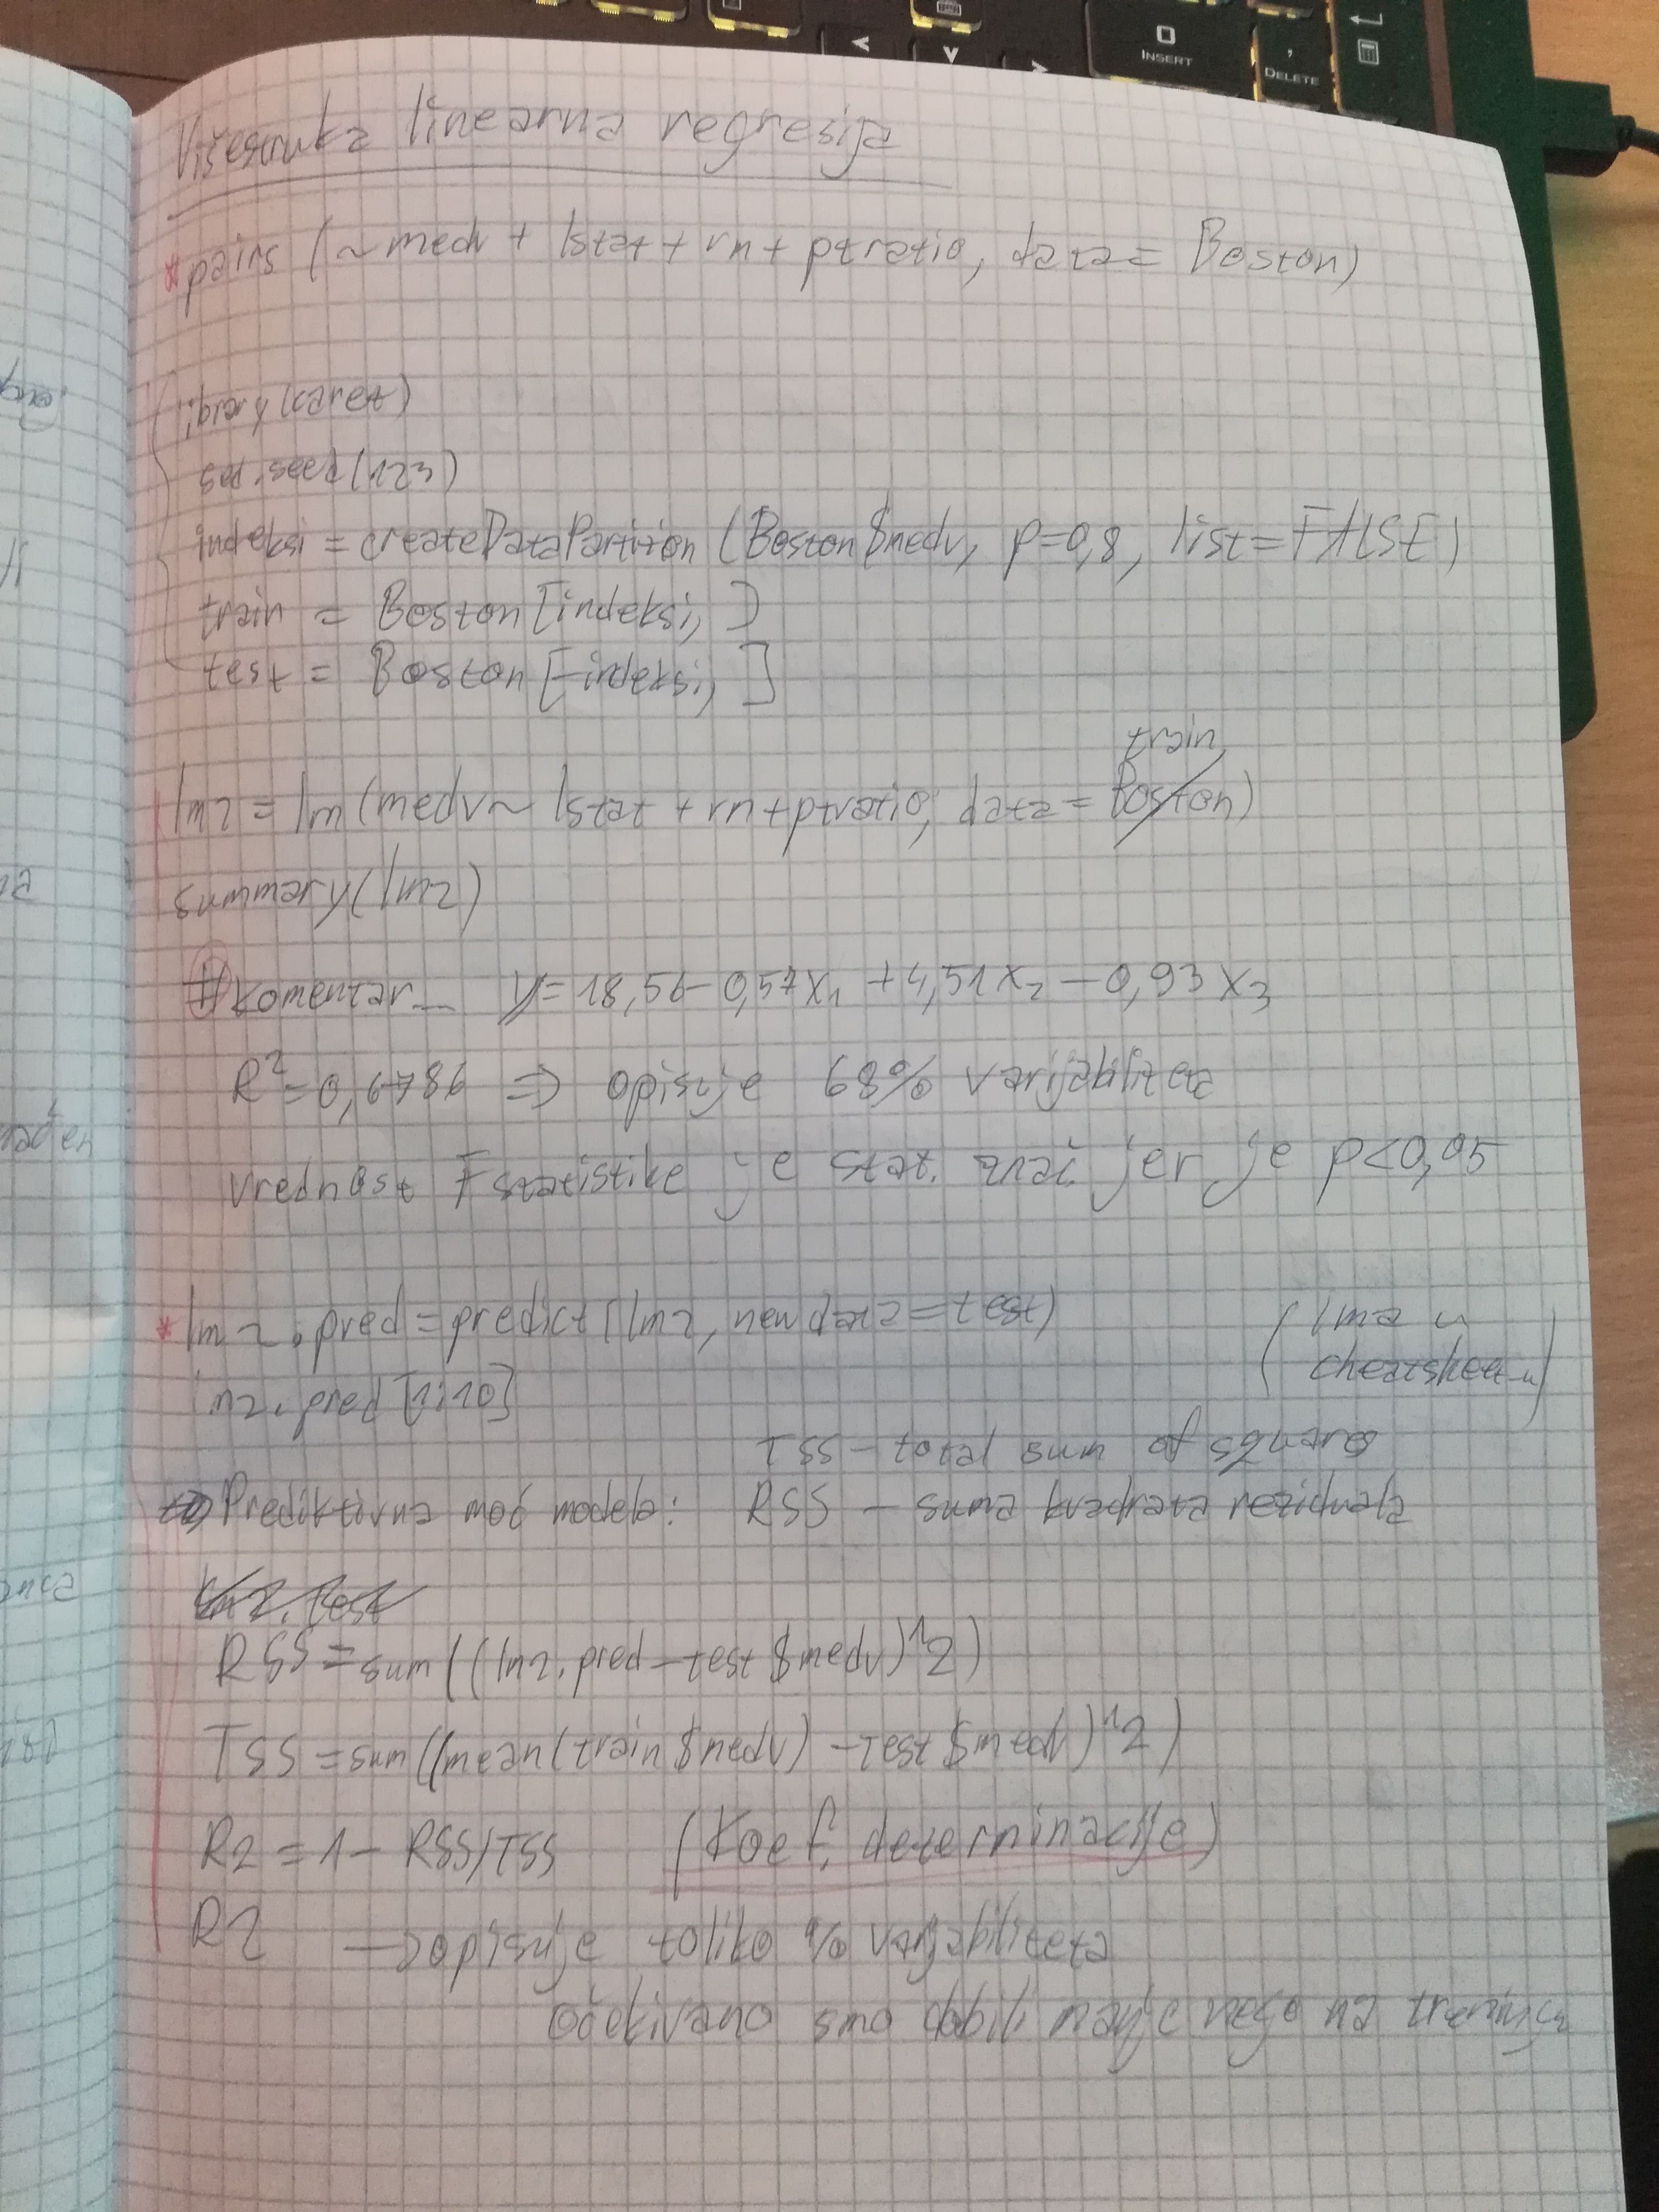 INSERT
DELETE
Višestruka linearna regresija
*pairs (~medv + lstat + rm + ptratio, data = Boston)
library (caret)
set.seed (123)
indeksi = createDataPartition (Boston$medv, p=0,8, list=FALSE)
train = Boston[indeksi, ]
test = Boston[-indeksi, ]
train
lm2 = lm (medv ~ lstat + rm + ptratio, data = Boston)
summary (lm2)
#komentar... y=18,56-0,57x1 +4,51x2 -0,93x3
R²=0,6786 => opisuje 68% varijabiliteta
vrednost F statistike je stat. znač. jer je p<0,05
*lm2.pred = predict (lm2, newdata = test)
(Ima u
lm2.pred [1:10]
cheatsheet-u)
TSS - total sum of squares
Prediktivna moć modela: RSS - suma kvadrata reziduala
lm2.test
RSS = sum ((lm2.pred - test$medv)^2)
TSS = sum ((mean (train$medv) - test$medv)^2)
R2 = 1 - RSS/TSS (koef. determinacije)
R2 → opisuje toliko % varijabiliteta
očekivano smo dobili manje nego na treningu